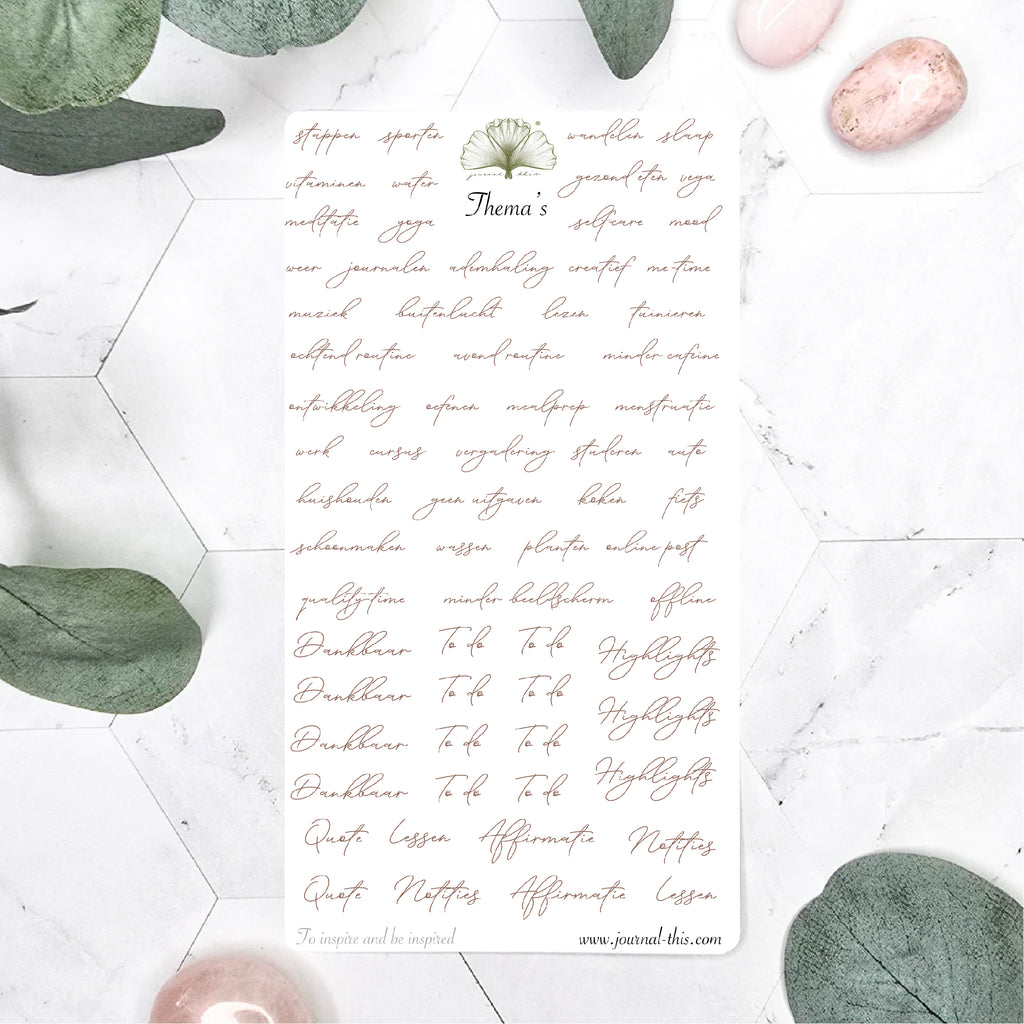 stappen sporten wandelen slaap
journal this
vitaminen water gezond eten vega
Thema's
meditatie yoga selfcare mood
weer journalen ademhaling creatief me-time
muziek buitenlucht lezen tuinieren
ochtend routine avond routine minder cafeïne
ontwikkeling oefenen mealprep menstruatie
werk cursus vergadering studeren auto
huishouden geen uitgaven koken fiets
schoonmaken wassen planten online post
quality-time minder beeldscherm offline
Dankbaar To do To do Highlights
Dankbaar To do To do Highlights
Dankbaar To do To do
Dankbaar To do To do Highlights
Quote Lessen Affirmatie Notities
Quote Notities Affirmatie Lessen
To inspire and be inspired www.journal-this.com